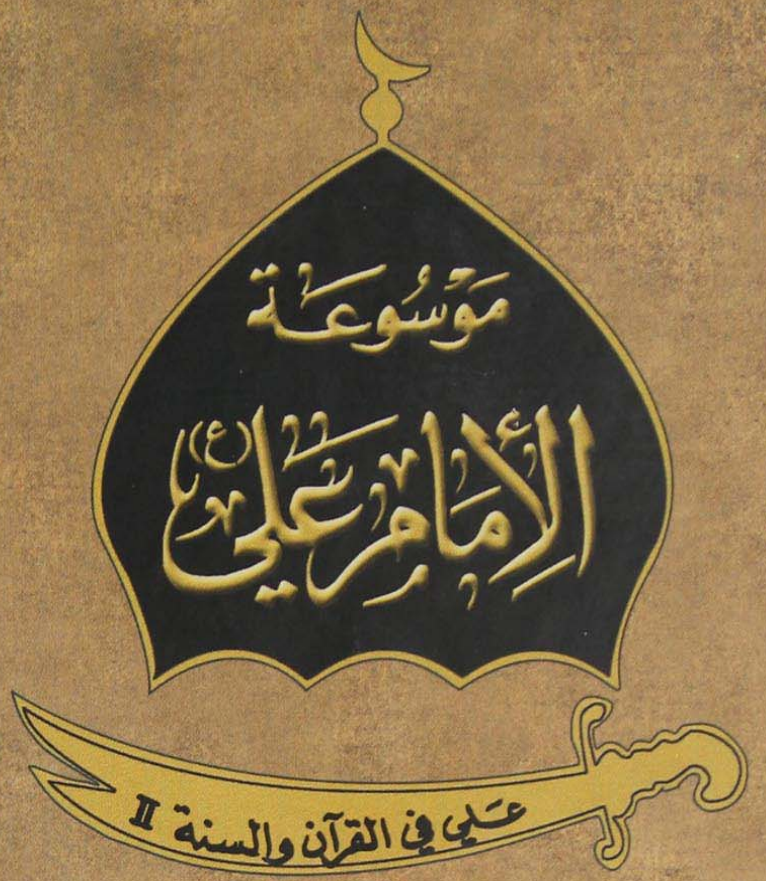 مَوْسُوعَة
الإِمَام عَلي (ع)
عَلي في القرآن والسنة II